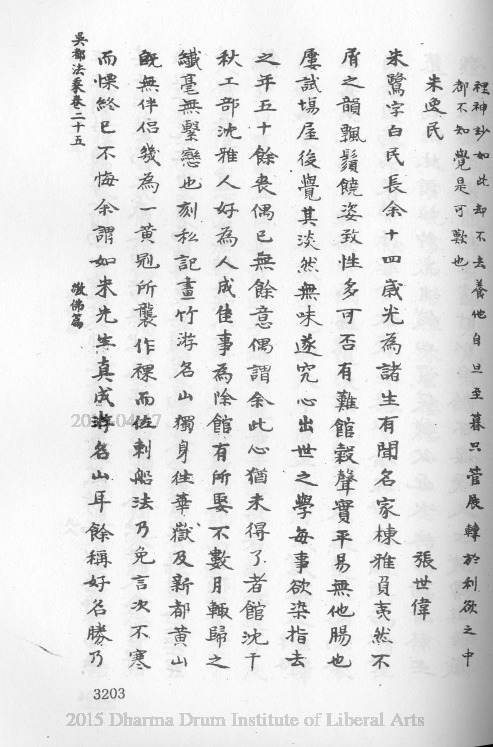 裡神妙如此却不去養他自旦至暮只管展轉於利欲之中
都不知覺是可歎也
朱逸民
張世偉
朱鷺字白民長余十四歲尤為諸生有聞名家棟雅負夷然不
屑之韻飄鬚饒姿致性多可否有難館穀聲實平易無他腸也
屢試場屋後覺其淡然無味遂究心出世之學每事欲染指去
之年五十餘喪偶已無餘意偶謂余此心猶未得了者館沈千
秋工部沈雅人好為人成佳事為除館有所娶不數月輙歸之
纖毫無繫戀也刻私記畫竹游名山獨身徃華嶽及新都黃山
旣無伴侣幾為一黃𠒋所襲作裸而佐刺船法乃免言次不寒
而慄終已不悔余謂如朱先生真成游名山耳餘稱好名勝乃
吳都法乘卷二十五
敬佛篇
3203
2015-04-17
2015 Dharma Drum Institute of Liberal Arts